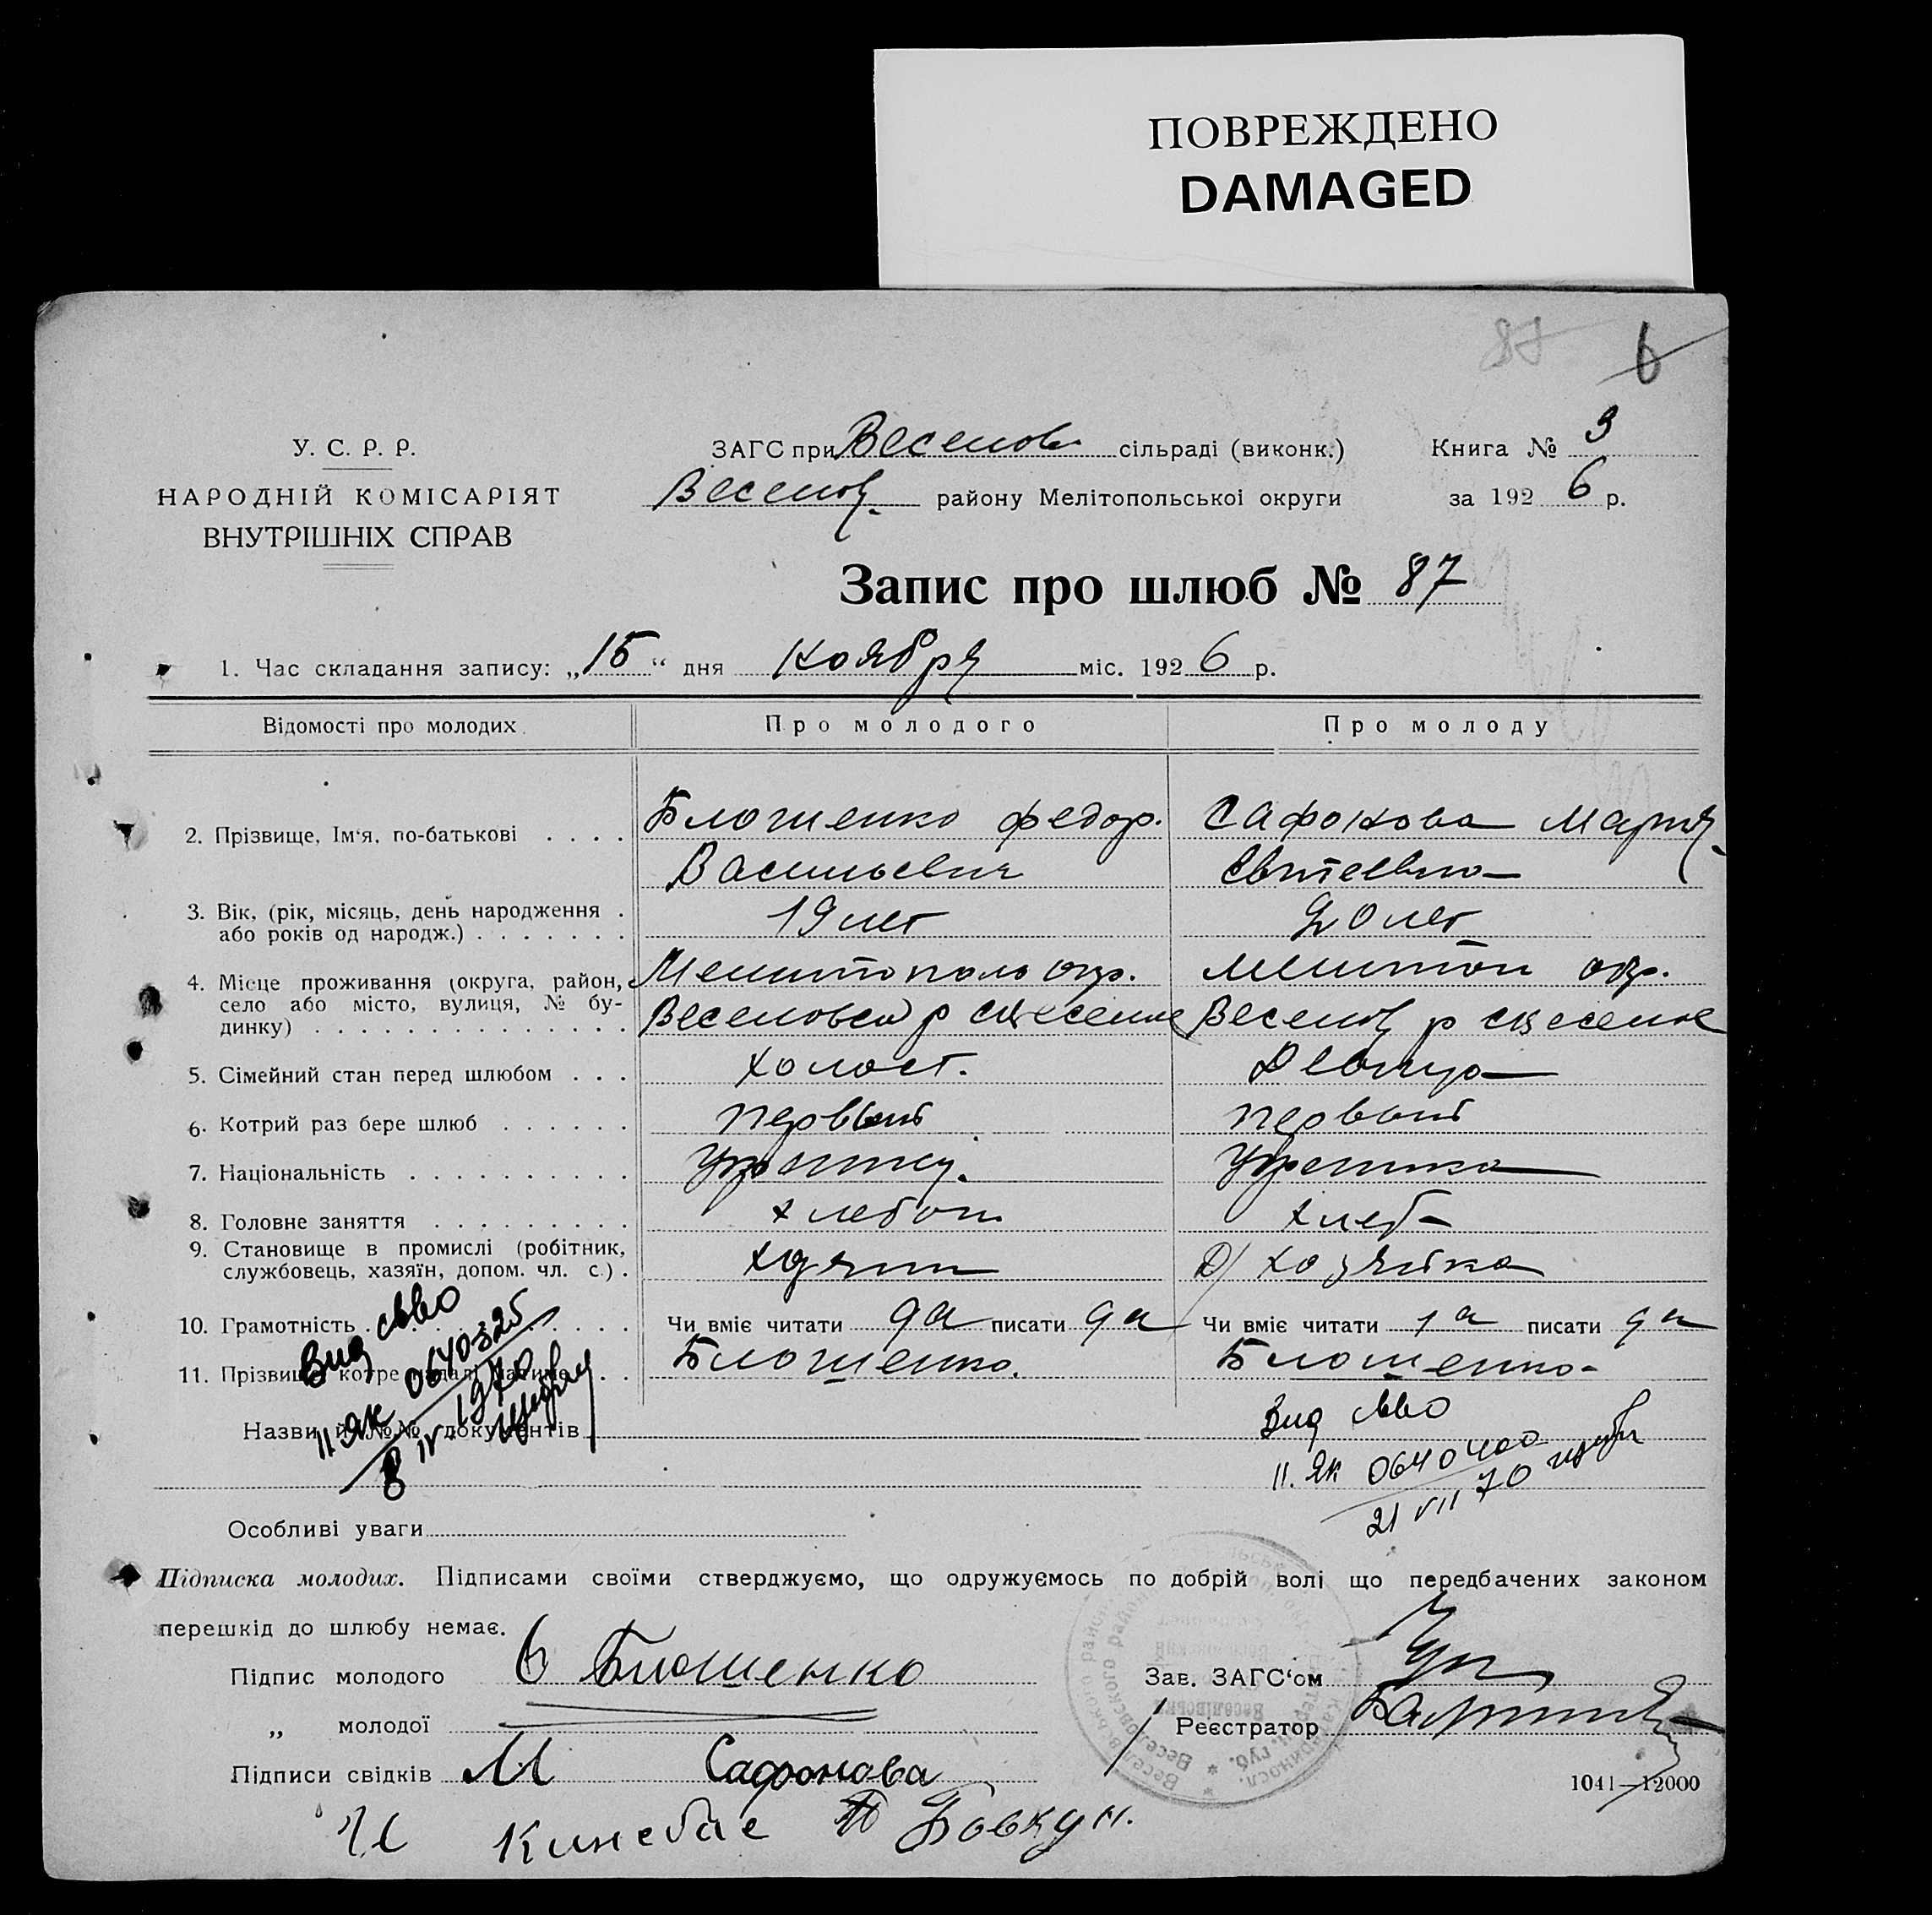 ПОВРЕЖДЕНО
DAMAGED
87 6
У. С. Р. Р.
НАРОДНІЙ КОМІСАРІЯТ
ВНУТРІШНІХ СПРАВ
ЗАГС при Веселов сільраді (виконк.) Книга № 3
Веселов. району Мелітопольської округи за 1926 р.
Запис про шлюб № 87
1. Час складання запису: „15“ дня ноября міс. 1926 р.
Відомості про молодих. Про молодого Про молоду
2. Прізвище, Ім'я, по-батькові . . . . Блошенко Федор. Сафонова Мария
Васильевич
3. Вік, (рік, місяць, день народження . 19 лет 20 лет
або років од народж.) . . . . . . .
4. Місце проживання (округа, район, Мелитополь окр. Мелитоп окр.
село або місто, вулиця, № бу- Веселовск р Веселов р
динку) . . . . . . . . . . . . . .
5. Сімейний стан перед шлюбом . . . холост. Девица
6. Котрий раз бере шлюб . . . . . . первый первый
7. Національність . . . . . . . . . .
8. Головне заняття . . . . . . . . . хлебоп хлеб
9. Становище в промислі (робітник, хозяин Д/ хозяйка
службовець, хазяїн, допом. чл. с.) .
10. Грамотність . . . . Чи вміє читати да писати да Чи вміє читати да писати да
11. Прізвище, котре надалі матиме . . Блошенко. Блошенко
Назви й №№ документів
Вид свво
II ЯК 0640325
8 IV 1970
Вид свво
II. ЯК 0640400
21 VII 70
Особливі уваги
Підписка молодих. Підписами своїми стверджуємо, що одружуємось по добрій волі що передбачених законом
перешкід до шлюбу немає.
Підпис молодого Блошенко Зав. ЗАГС‘ом
„ молодої Реєстратор
Підписи свідків М Сафонова
1041—12000
Бовкун.